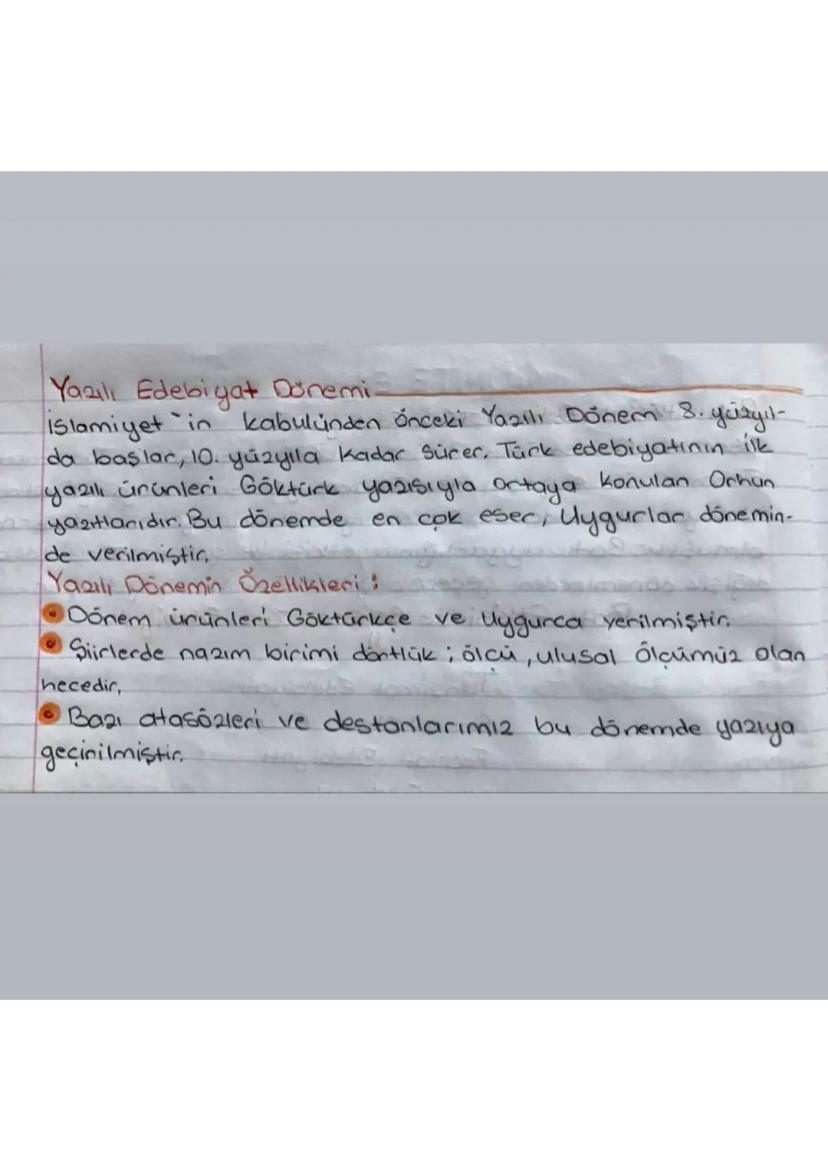 Yazılı Edebiyat Dönemi
İslamiyet'in kabulünden önceki Yazılı Dönem 8. yüzyıl-
da başlar, 10. yüzyıla kadar sürer. Türk edebiyatının ilk
yazılı ürünleri Göktürk yazısıyla ortaya konulan Orhun
yazıtlarıdır. Bu dönemde en çok eser, Uygurlar dönemin-
de verilmiştir.
Yazılı Dönemin Özellikleri :
Dönem ürünleri Göktürkçe ve Uygurca verilmiştir.
Şiirlerde nazım birimi dörtlük ; ölçü, ulusal ölçümüz olan
hecedir.
Bazı atasözleri ve destanlarımız bu dönemde yazıya
geçirilmiştir.